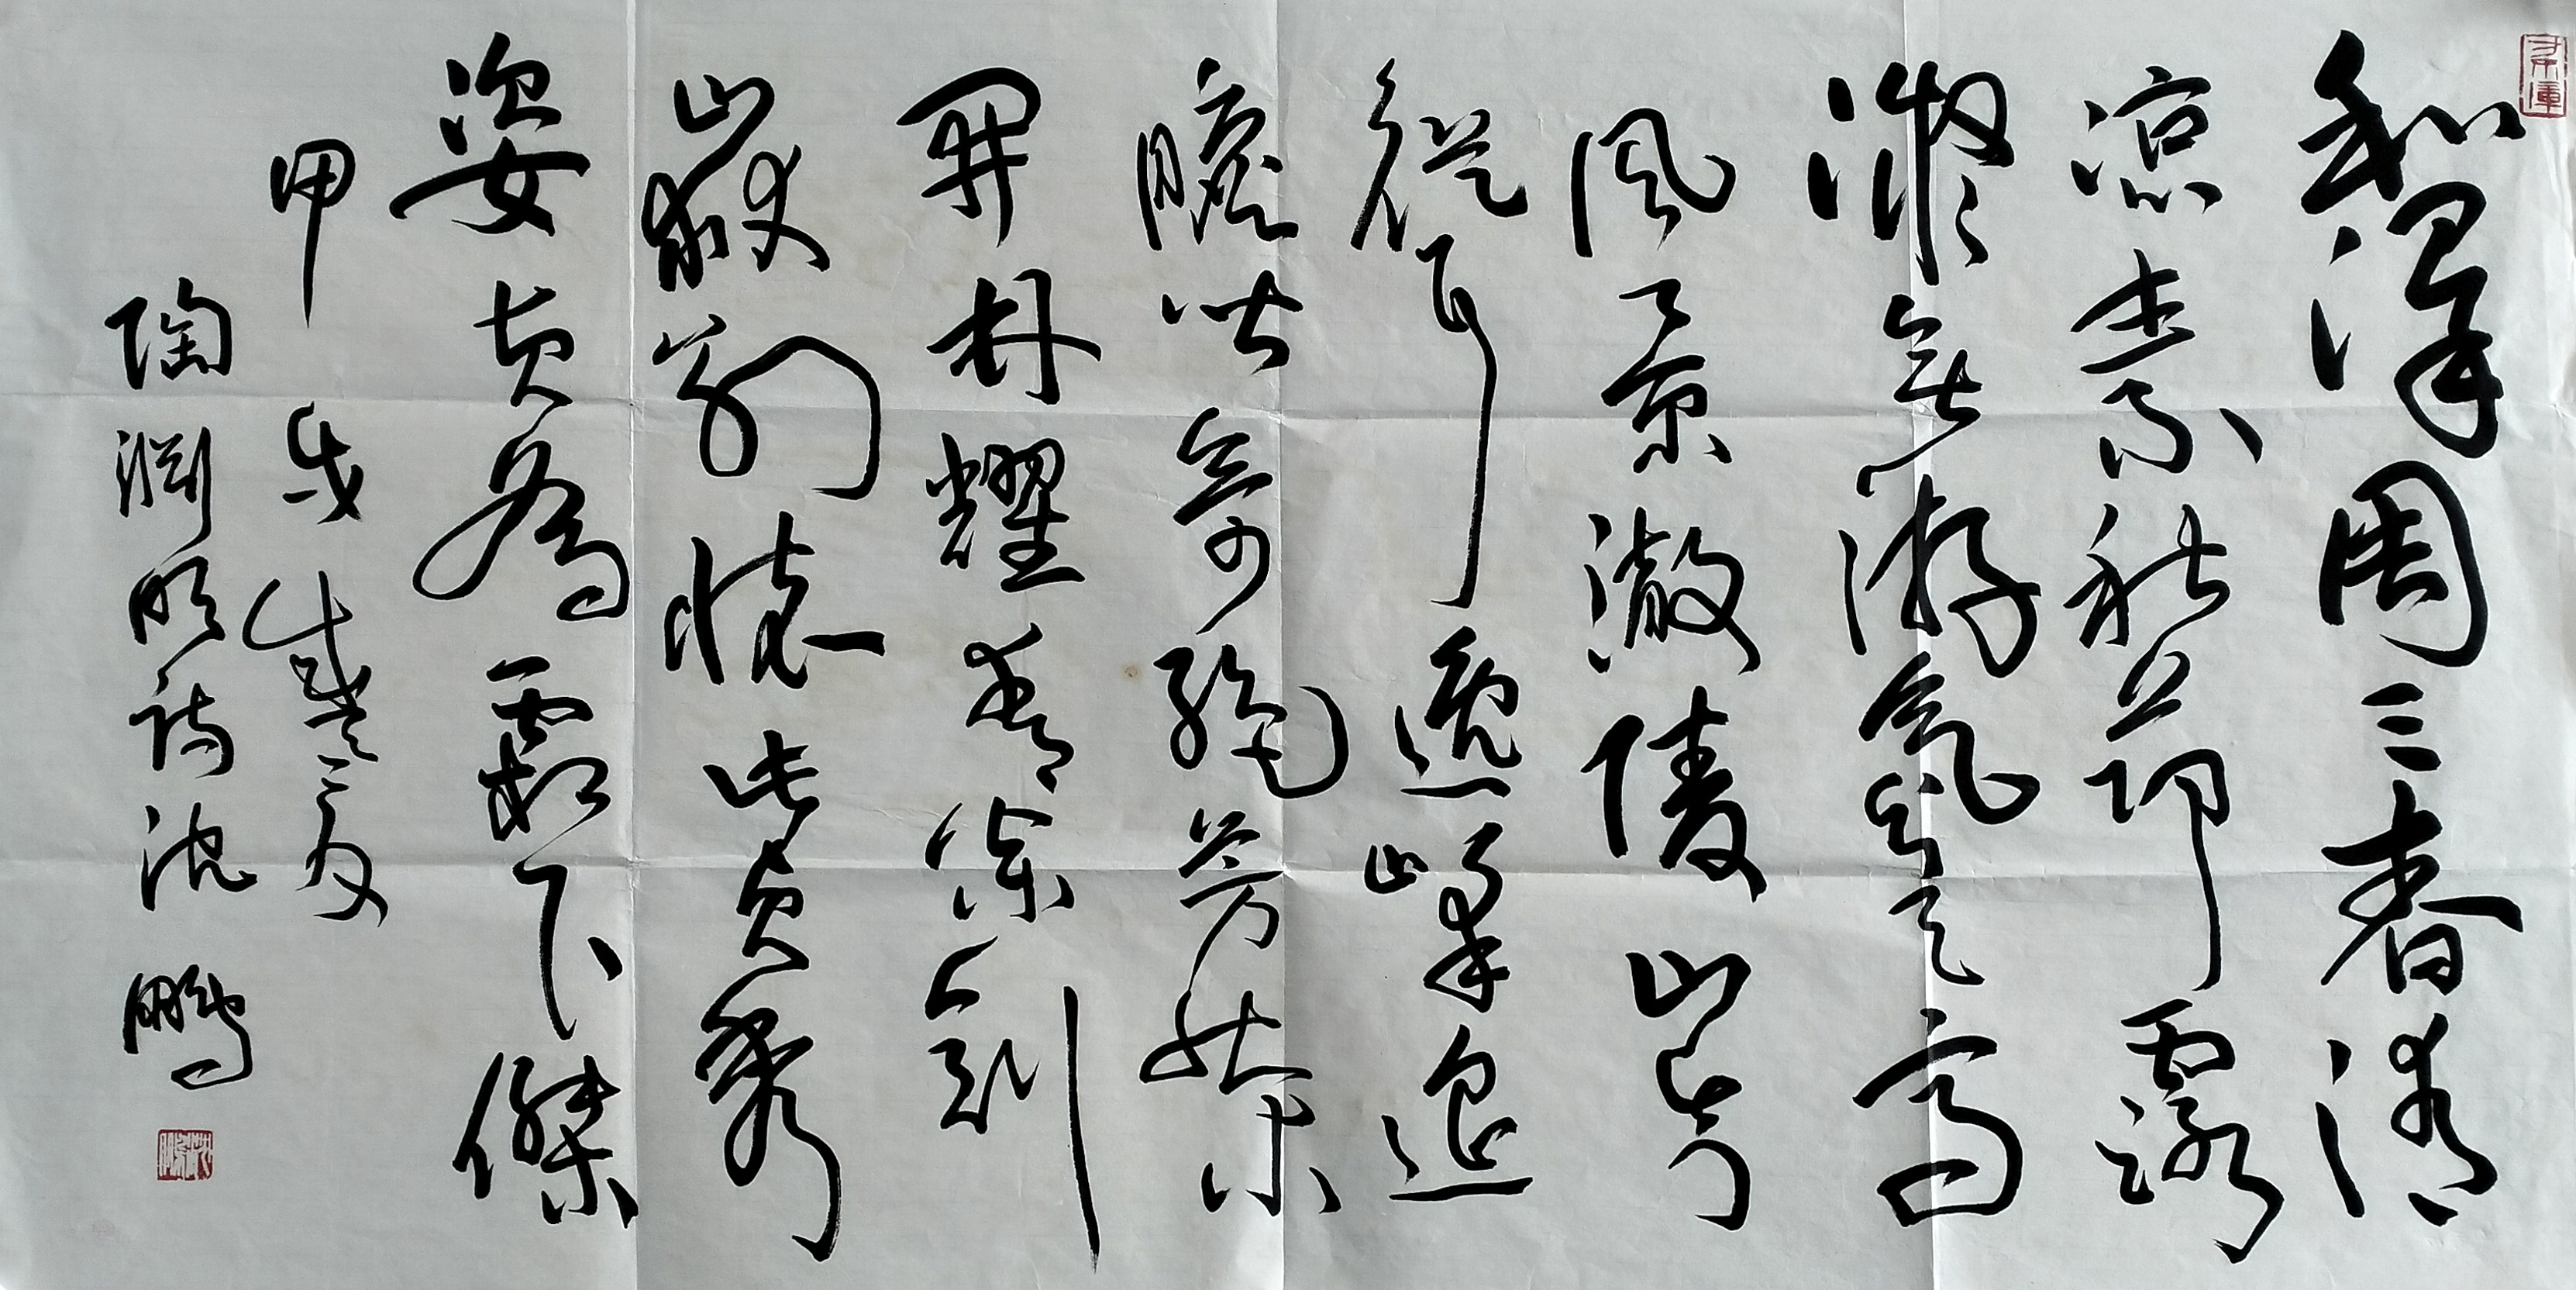 和澤周三春清
涼素秋節露
凝無游氛天高
風景澈陵岑
聳逸峰遥
瞻皆奇絶芳菊
開林耀青松冠
巖列懷此貞秀
姿卓為霜下傑
甲戌盛夏
陶淵明詩沈鵬